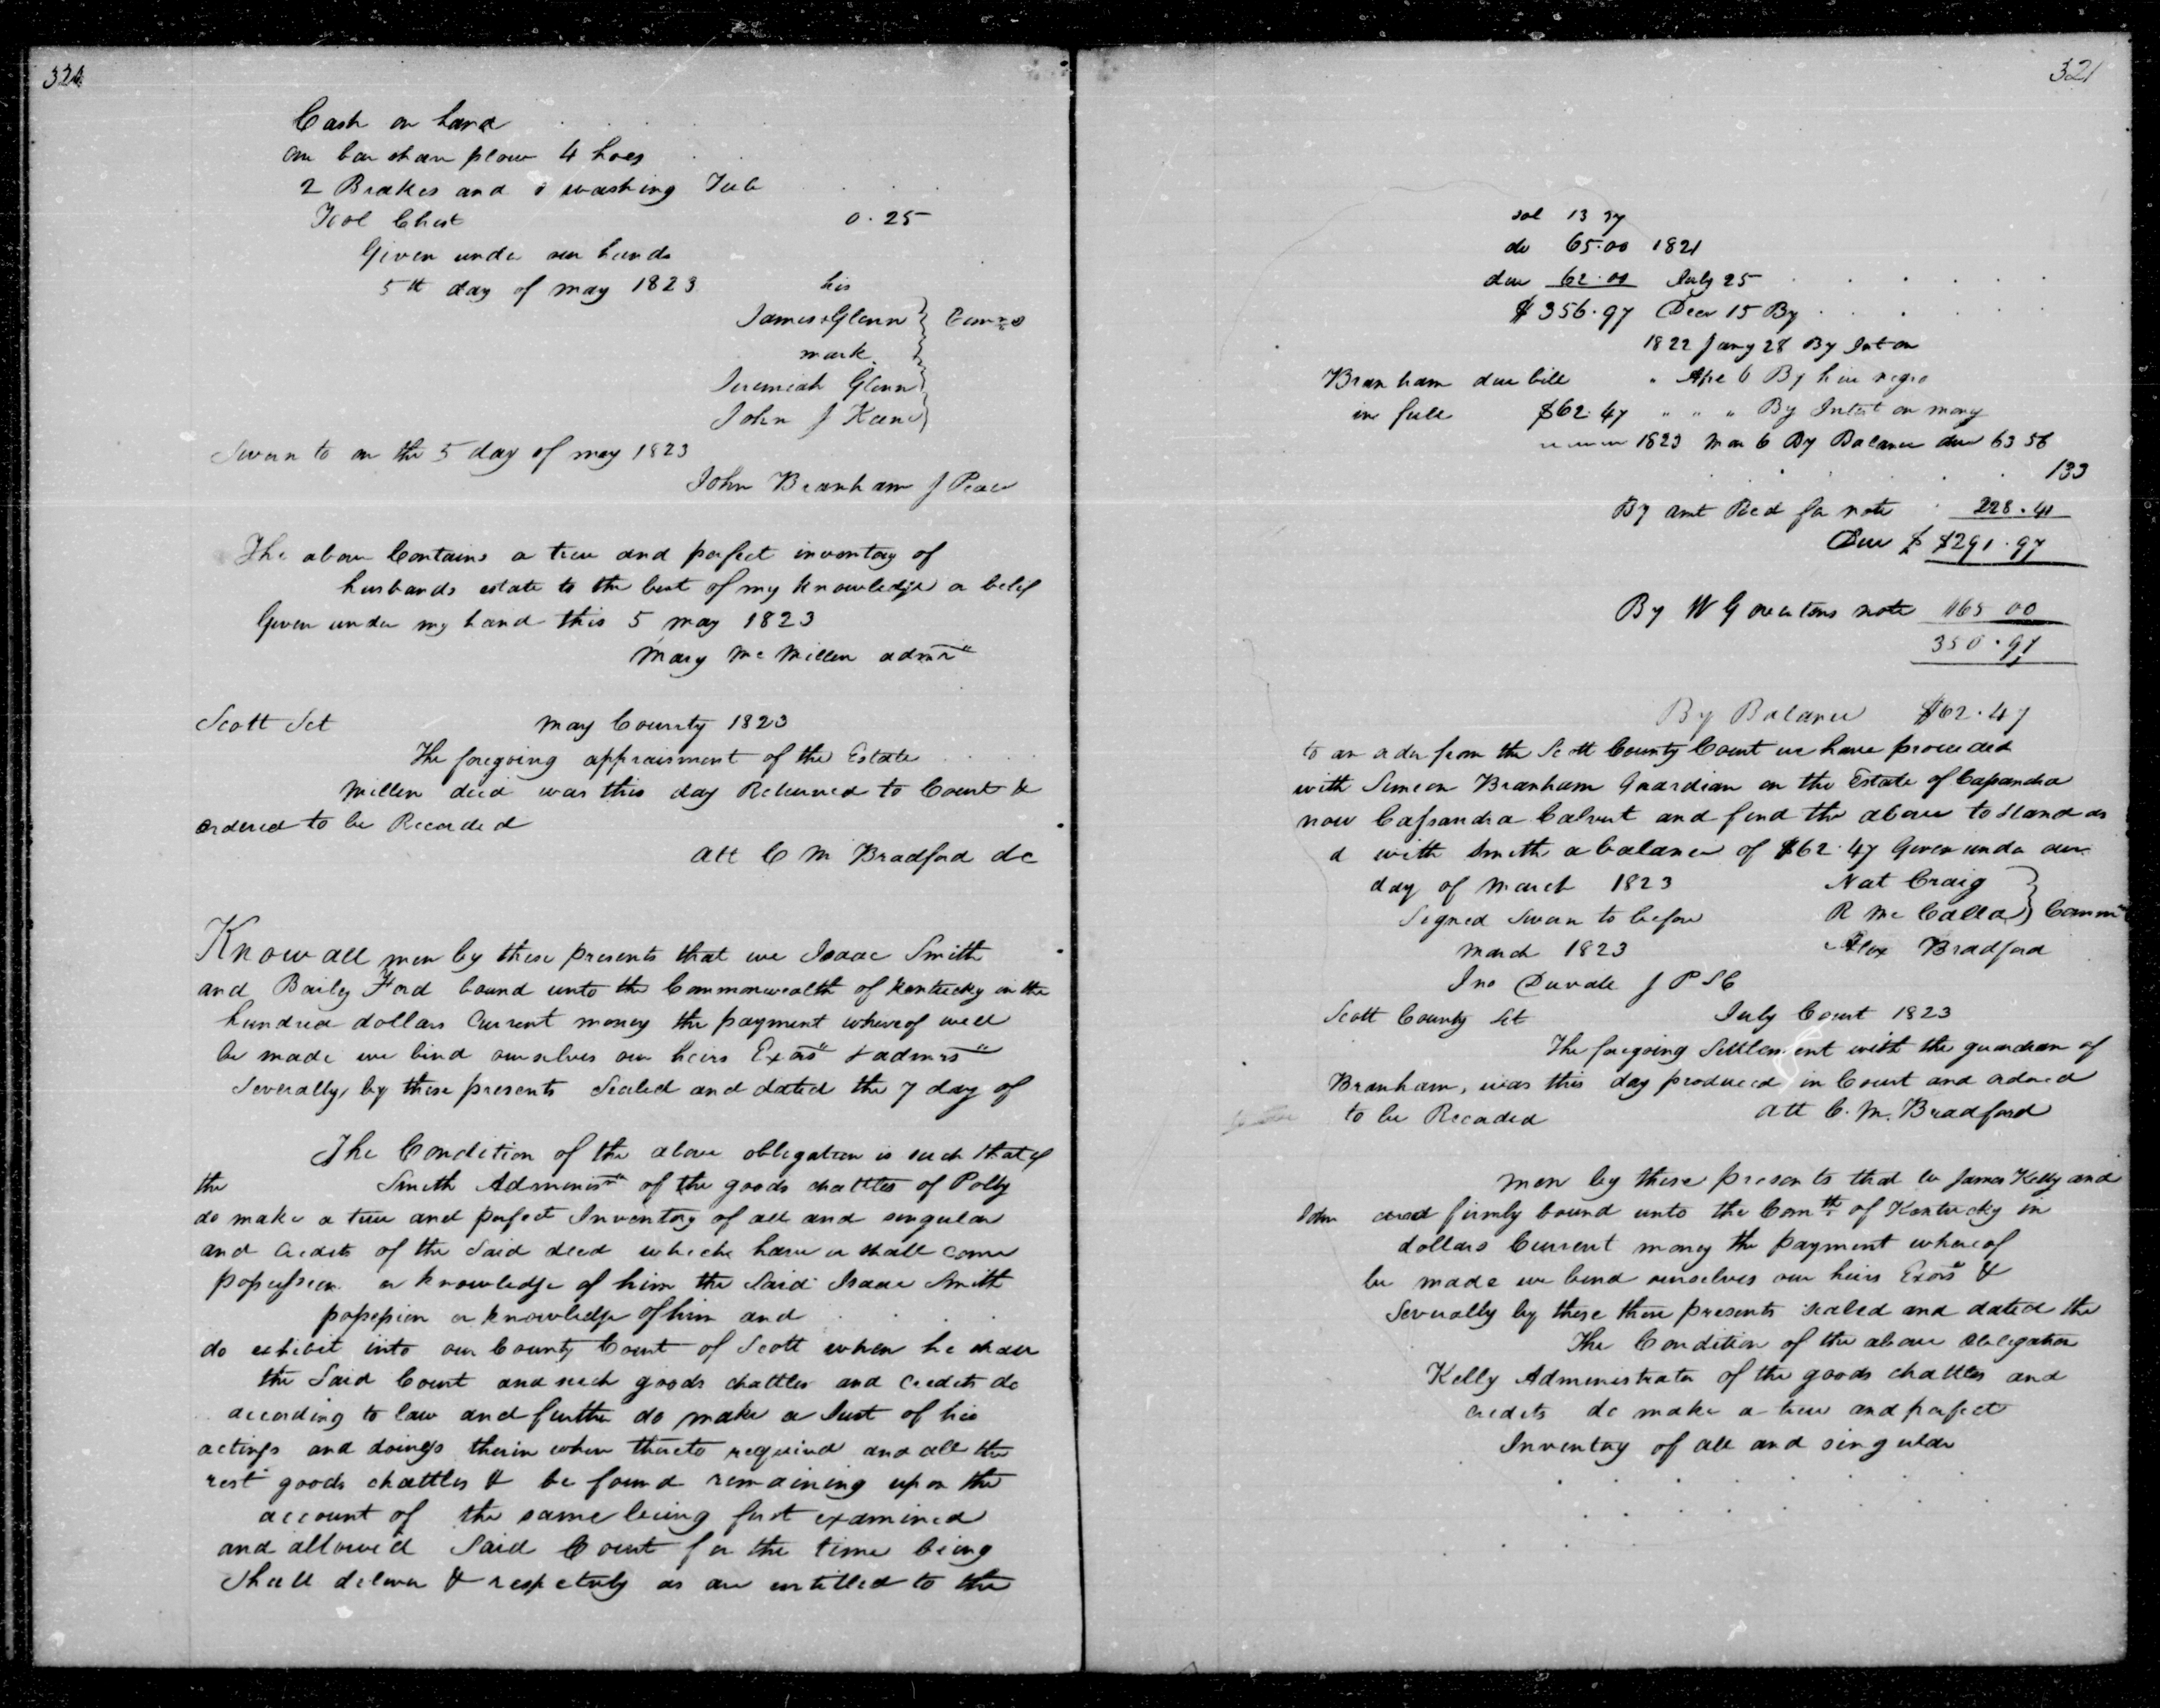 320
Cash on hand
one bar share plow 4 hoes
2 Brakes and washing Tub
Tool Chest 0.25
Given under our hands
5th day of may 1823
his
James + Glenn
mark
Comrs
Jeremiah Glenn
John J Keene
Sworn to on the 5 day of may 1823
John Branham J Peace
The above Contains a true and perfect inventory of
husbands estate to the best of my knowledge a belief
Given under my hand this 5 may 1823
Mary Mc Millen admr
Scott Sct May County 1823
The foregoing appraisment of the Estate
Millen decd was this day Returned to Court &
ordered to be Recorded
att C M Bradford dc
Know all men by these presents that we Isaac Smith
and Baily Ford bound unto the Commonwealth of Kentucky in the
hundred dollars Current money the payment whereof well
be made we bind ourselves our heirs Exors & admrs
Severally, by these presents Sealed and dated the 7 day of
The Condition of the above obligation is such that if
the Smith Adminisr of the goods chattles of Polly
do make a true and perfect Inventory of all and singular
and Credits of the Said decd which have or shall come
possession or knowledge of him the Said Isaac Smith
possession or knowledge of him and
do exhibit into our County Court of Scott when he shall
the Said Court and such goods chattles and Credits do
according to law and further do make a Just of his
actings and doings therin when thereto required and all the
rest goods chattles & be found remaining upon the
account of the same being first examined
and allowed Said Court for the time being
Shall deliver & respectvly as are entitled to the
321
13 37
do 65.00 1821
due 62.00 July 25
$356.97 Decr 15 By
1822 Jany 28 By Int on
Branham due bill " Apl 6 By hire negro
in full $62.47 " " " By Intst on mony
1823 Mar 6 By Balance due 63 56
133
By amt Recd for note 228.41
Due $ $291.97
By W G note $65 00
350.97
By Balance $62.47
to an order from the Scott County Court we have proceeded
with Simeon Branham Guardian on the Estate of Cassandra
now Cassandra Calvert and find the above to Stand as
d with Smith a balance of $62.47 Given under our
day of March 1823 Nat Craig
Signed Sworn to before R Mc Calla Comm
March 1823 Alex Bradford
Jno Duvall J P S C
Scott County Sct July Court 1823
The foregoing Settlement with the guardian of
Branham, was this day produced in Court and ordered
to be Recorded att C. M. Bradford
men by these presents that we James Kelly and
John firmly bound unto the Comth of Kentucky in
dollars Current money the payment whereof
be made we bind ourselves our heirs Exors &
Severally by these these presents sealed and dated the
The Condition of the above obligation
Kelly Administrator of the goods chattles and
credits do make a true and perfect
Inventory of all and singular